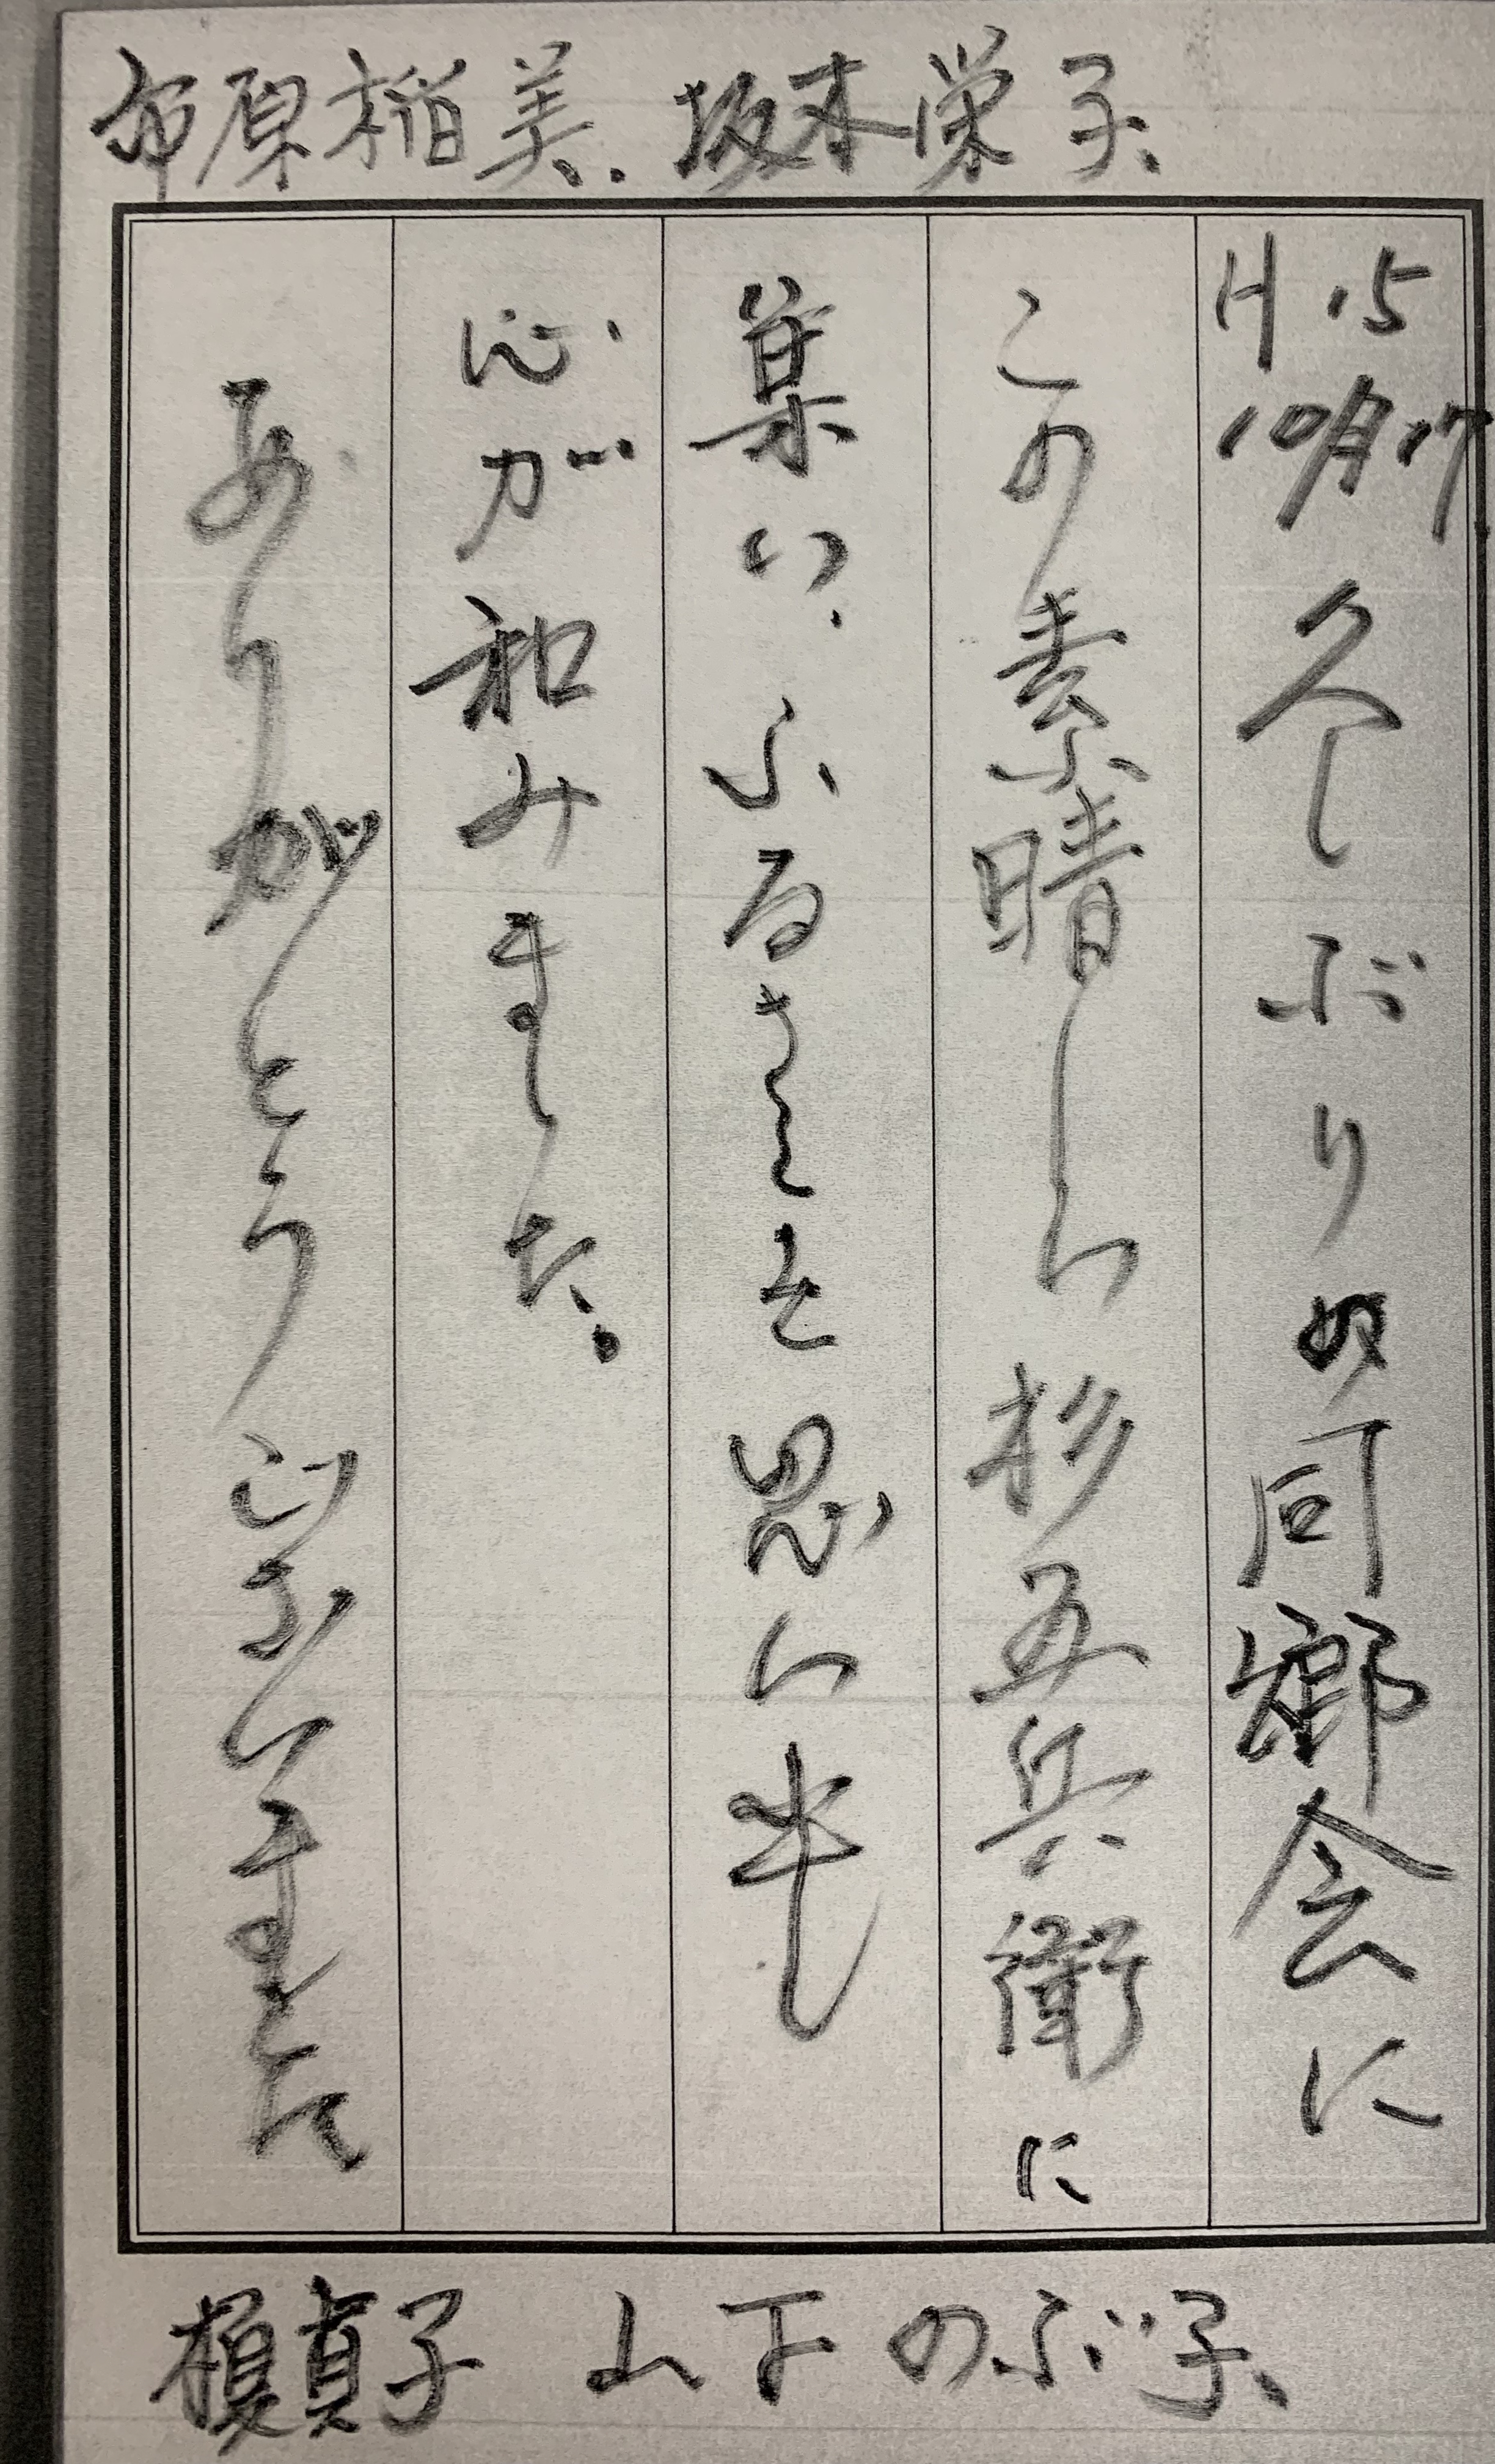 市原稲美、坂本栄子
H.15
10月17
久しぶりの同郷会に
この素晴しい杉五兵衛に
集い、ふるさとを思い出し
心が和みました。
ありがとうございました
榎貞子 山下のぶ子